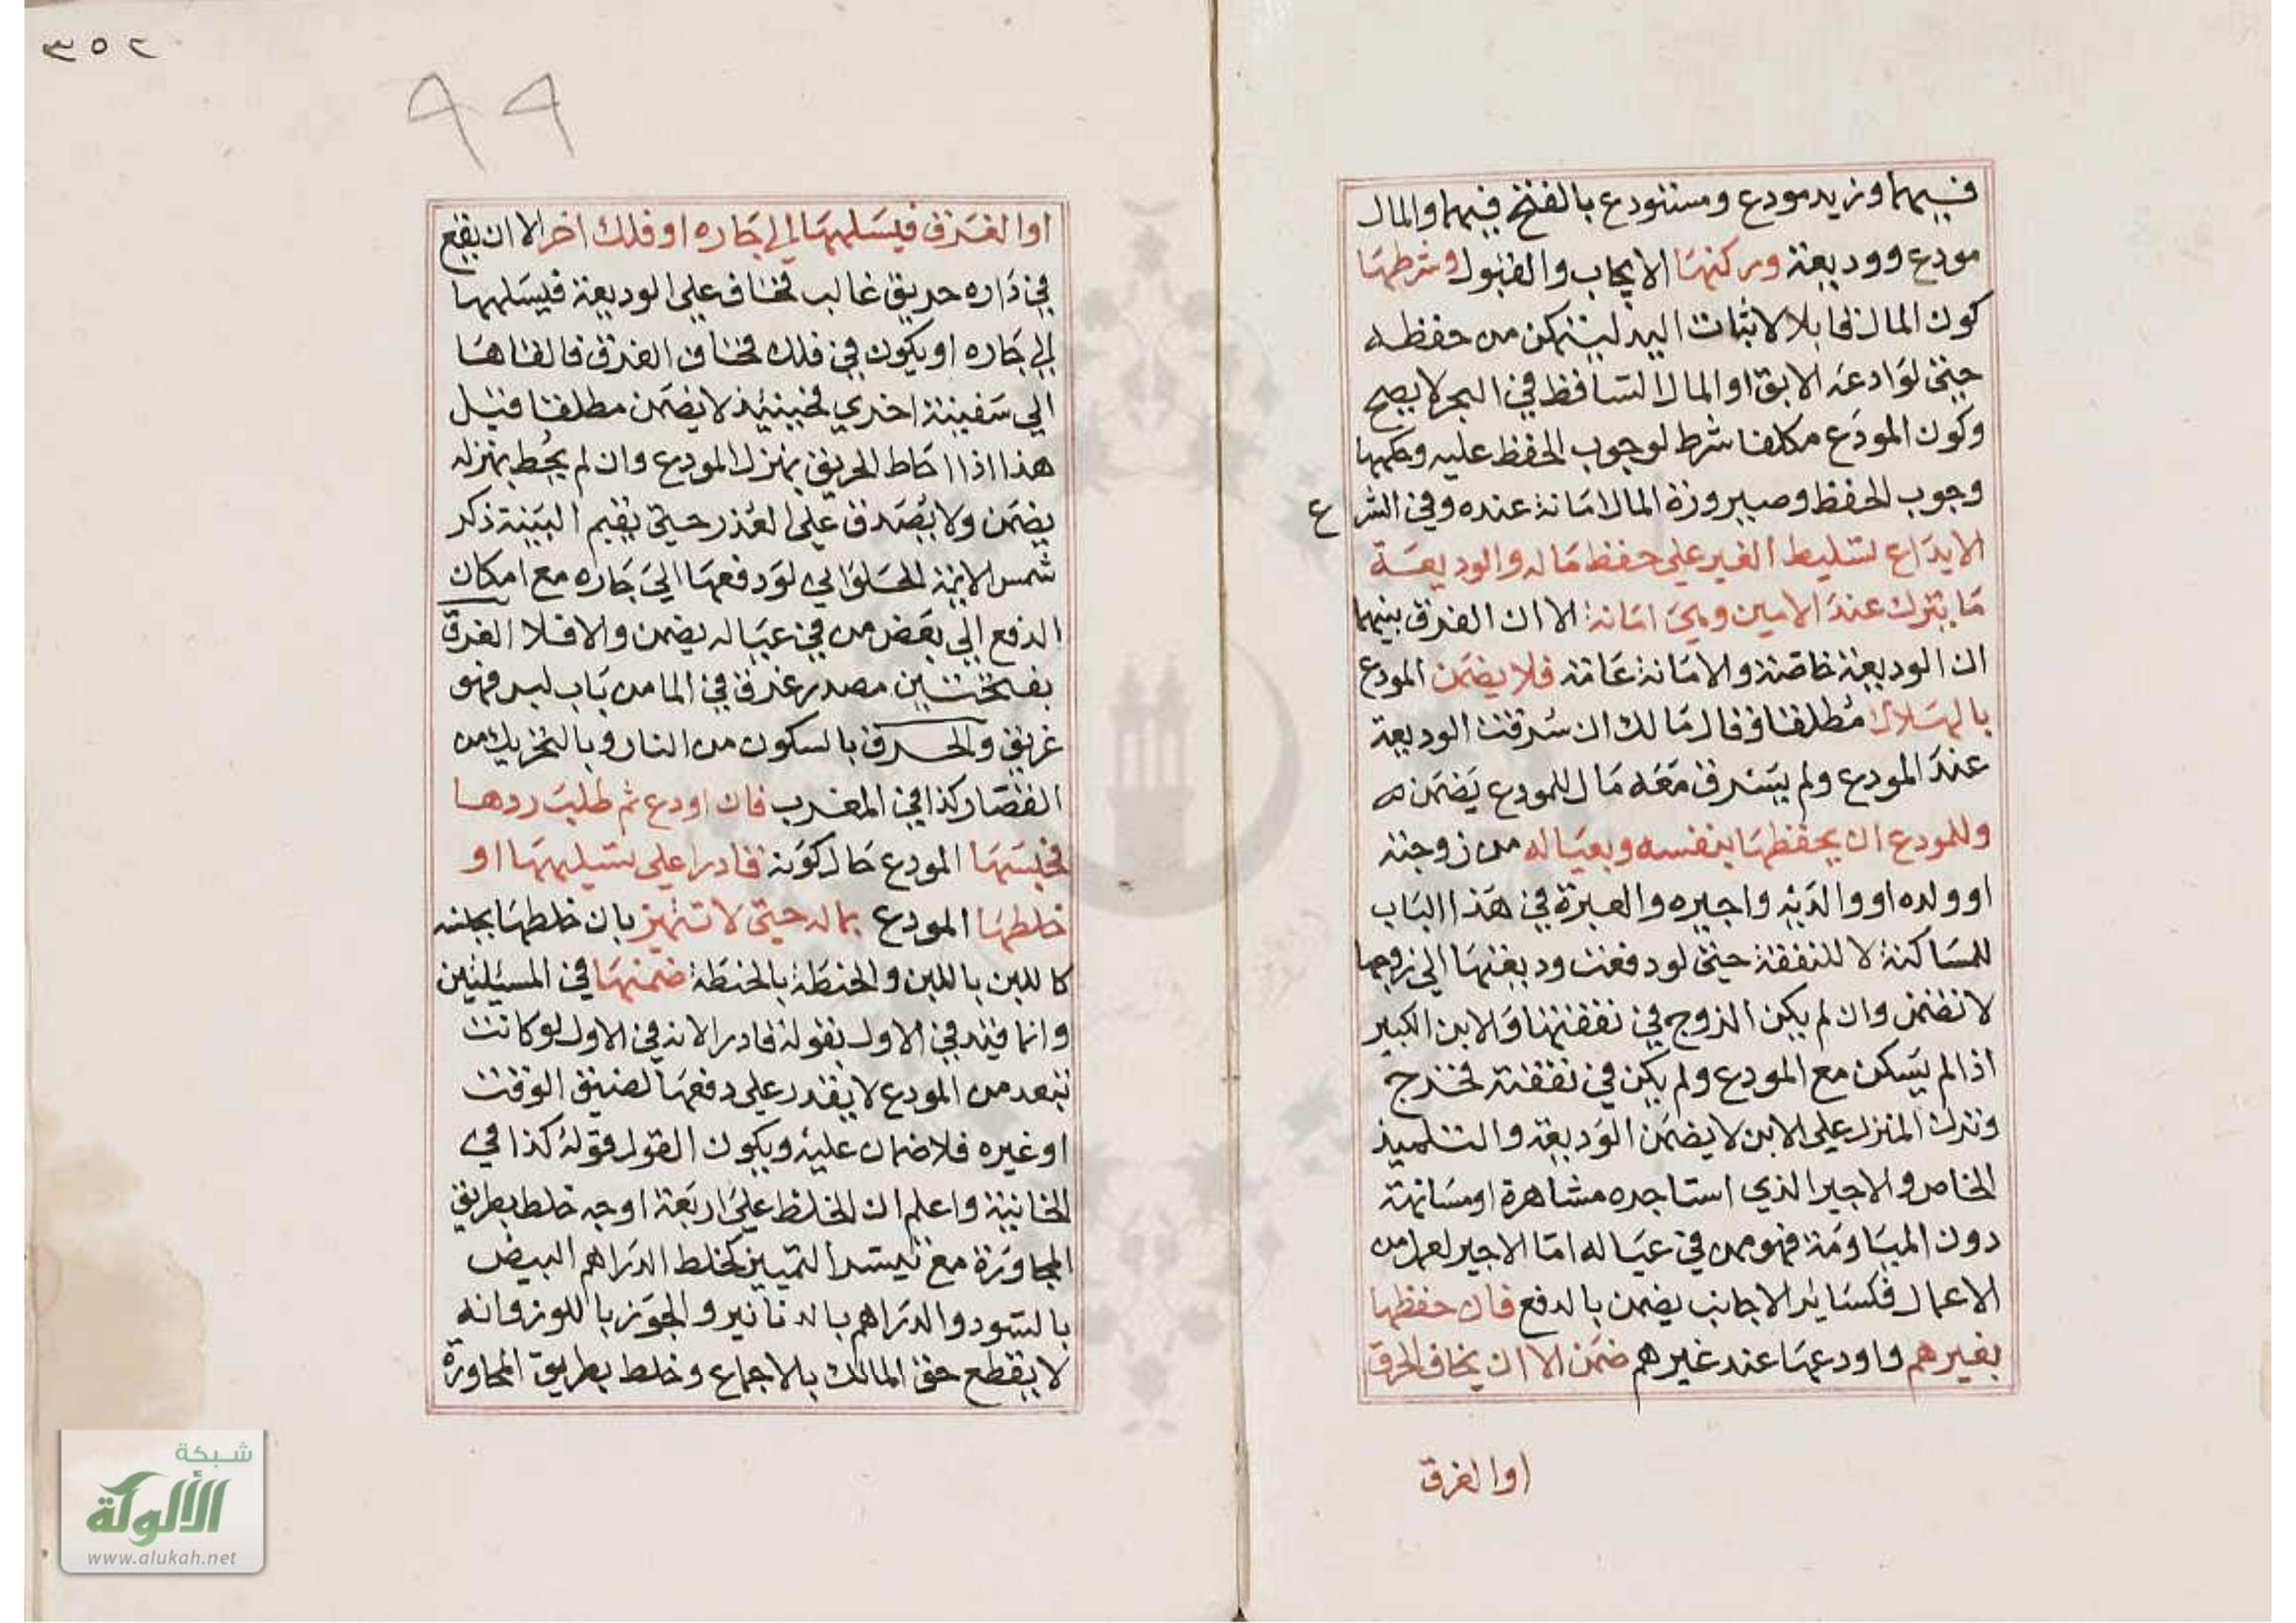 فيهما وزيد مودع ومستودع بالفتح فيهما والمال
مودع ووديعة وركنها الايجاب والقبول وشرطها
كون المال قابلا لاثبات اليد ليتمكن من حفظه
حتى لو اودعه الابق او المال الساقط في البحر لا يصح
وكون المودع مكلفا شرط لوجوب الحفظ عليه وحكمها
وجوب الحفظ وصيرورة المال امانة عنده وفي الشرع
الايداع تسليط الغير على حفظ ماله والوديعة
ما يترك عند الامين وهي امانة الا ان الفرق بينهما
ان الوديعة خاصة والامانة عامة فلا يضمن المودع
بالهلاك مطلقا وقال مالك ان سرقت الوديعة
عند المودع ولم يسرق معه مال للمودع يضمن
وللمودع ان يحفظها بنفسه وبعياله من زوجته
او ولده او والديه واجيره والعبرة في هذا الباب
للمساكنة لا للنفقة حتى لو دفعت وديعتها الى زوجها
لا تضمن وان لم يكن الزوج في نفقتها والابن الكبير
اذا لم يسكن مع المودع ولم يكن في نفقته فخرج
وترك المنزل على الابن لا يضمن الوديعة والتلميذ
الخاص والاجير الذي استاجره مشاهرة او مسانهة
دون المياومة فهو ممن في عياله اما الاجير لعمل من
الاعمال فكسائر الاجانب يضمن بالدفع فان حفظها
بغيرهم واودعها عند غيرهم ضمن الا ان يخاف الحرق
او الغرق
٣٥٢
٩٩
او الغرق فيسلمها الى جاره او فلك اخر الا ان يقع
في داره حريق غالب فخاف على الوديعة فيسلمها
الى جاره او يكون في فلك فخاف الغرق فالقاها
الى سفينة اخرى فحينئذ لا يضمن مطلقا قيل
هذا اذا احاط الحريق بمنزل المودع وان لم يحط بمنزله
يضمن ولا يصدق على العذر حتى يقيم البينة ذكر
شمس الائمة الحلوالي لو دفعها الى جاره مع امكان
الدفع الى بعض من في عياله يضمن والا فلا الغرق
بفتحتين مصدر غرق في الما من باب لبد فهو
غريق والحرق بالسكون من النار وبالتحريك من
القصار كذا في المغرب فان اودع ثم طلب ردها
فحبسها المودع حال كونه قادرا على تسليمها او
خلطها المودع بماله حتى لا تتميز بان خلطها بجنسه
كاللبن باللبن والحنطة بالحنطة ضمنها في المسئلتين
وانما قيد في الاول بقوله قادرا لانه في الاول لو كانت
تبعد من المودع لا يقدر على دفعها لضيق الوقت
او غيره فلا ضمان عليه ويكون القول قوله كذا في
الخانية واعلم ان الخلط على اربعة اوجه خلط بطريق
المجاورة مع تيسر التمييز كخلط الدراهم البيض
بالسود والدراهم بالدنانير والجوز باللوز وانه
لا يقطع حق المالك بالاجماع وخلط بطريق المجاورة
شبكة
الألوكة
www.alukah.net